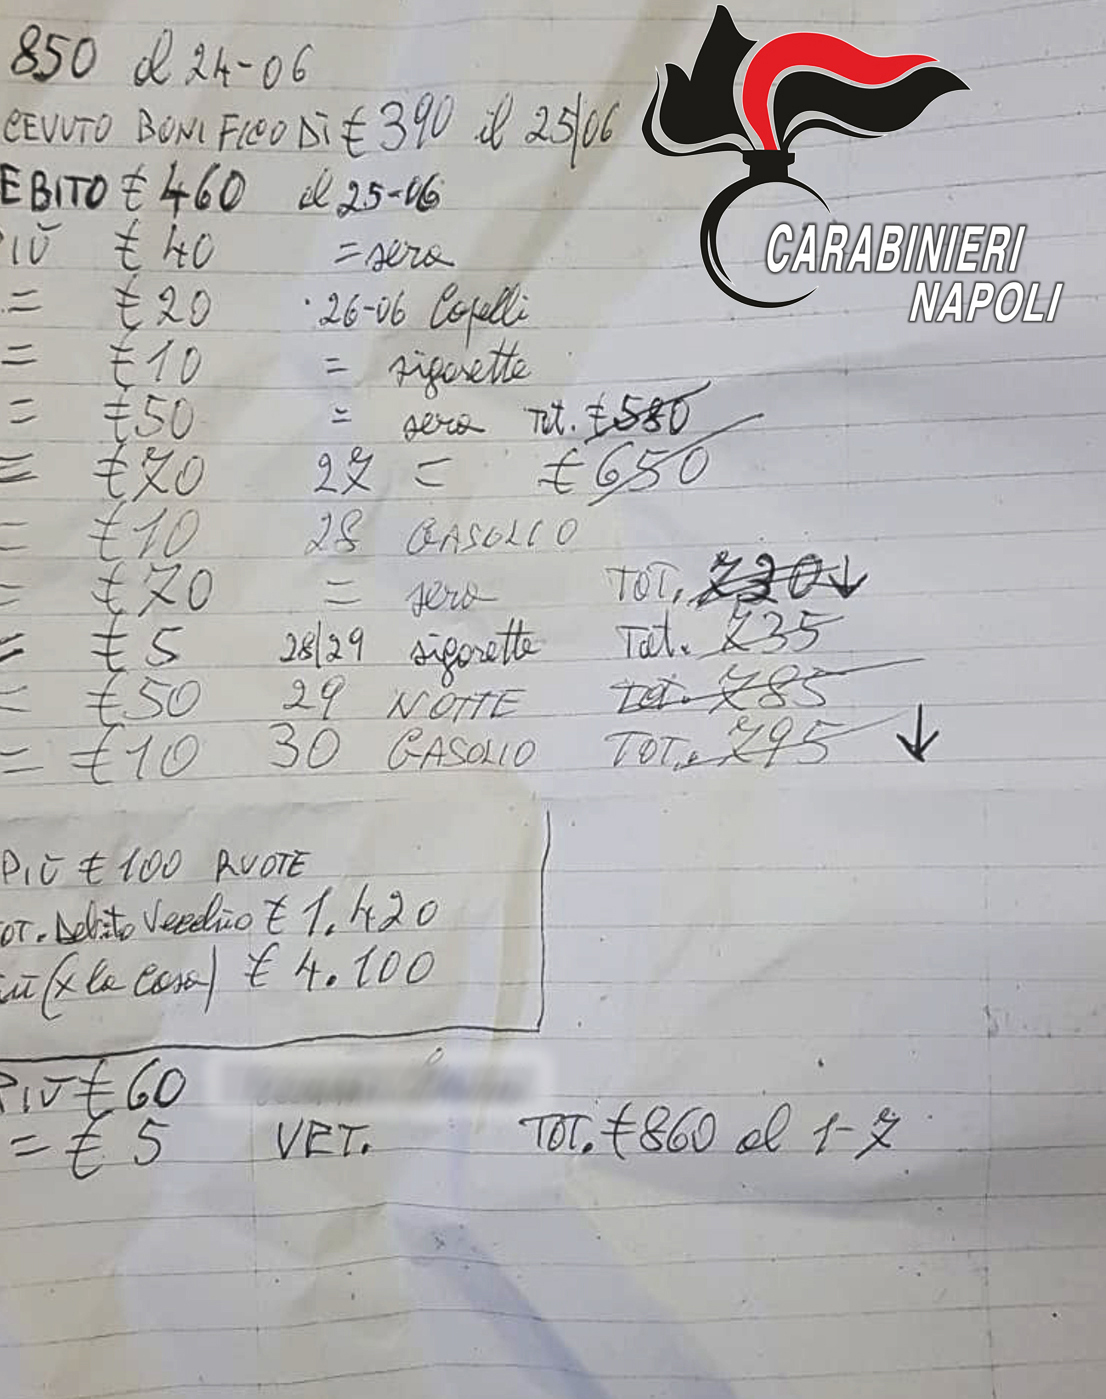 850 al 24-06
CEVUTO BONIFICO DI € 390 il 25/06
EBITO € 460 al 25-06
IÙ € 40 = sera
= € 20 26-06 Capelli
= € 10 = sigarette
= € 50 = sera Tot. € 580
= € 70 27 = € 650
= € 10 28 GASOLIO
= € 70 = sera TOT. 730 ↓
= € 5 28/29 sigarette Tot. 735
= € 50 29 NOTTE Tot. 785
= € 10 30 GASOLIO TOT. 795 ↓
PIÙ € 100 RUOTE
OT. Debito Vecchio € 1.420
iù (x la casa) € 4.100
PIÙ € 60
= € 5 VET. TOT. € 860 al 1-7
CARABINIERI
NAPOLI